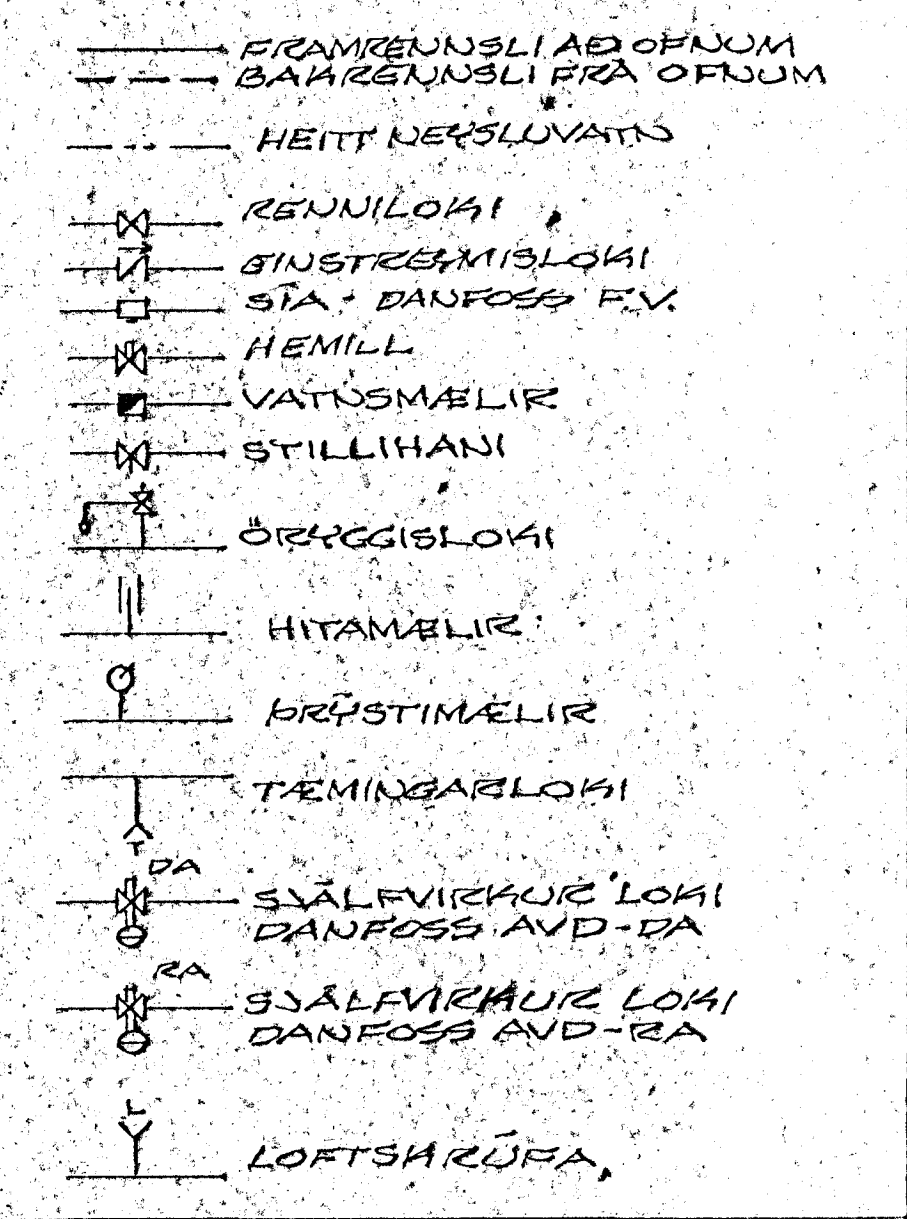 FRAMRENNSLI AÐ OFNUM
BAKRENNSLI FRÁ OFNUM
HEITT NEYSLUVATN
RENNILOKI
EINSTREYMISLOKI
SÍA - DANFOSS F.V.
HEMILL
VATNSMÆLIR
STILLIHANI
ÖRYGGISLOKI
HITAMÆLIR
ÞRÝSTIMÆLIR
TÆMINGARLOKI
T
DA
SJÁLFVIRKUR LOKI
DANFOSS AVD-DA
RA
SJÁLFVIRKUR LOKI
DANFOSS AVD-RA
L
LOFTSKRÚFA